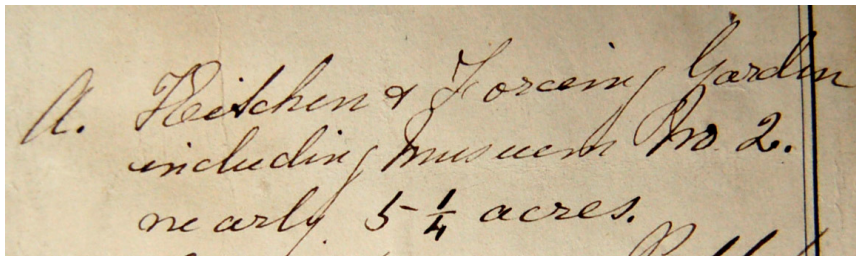 A. Kitchen & Forcing Garden
including Museum No. 2.
nearly 5 1/4 acres.